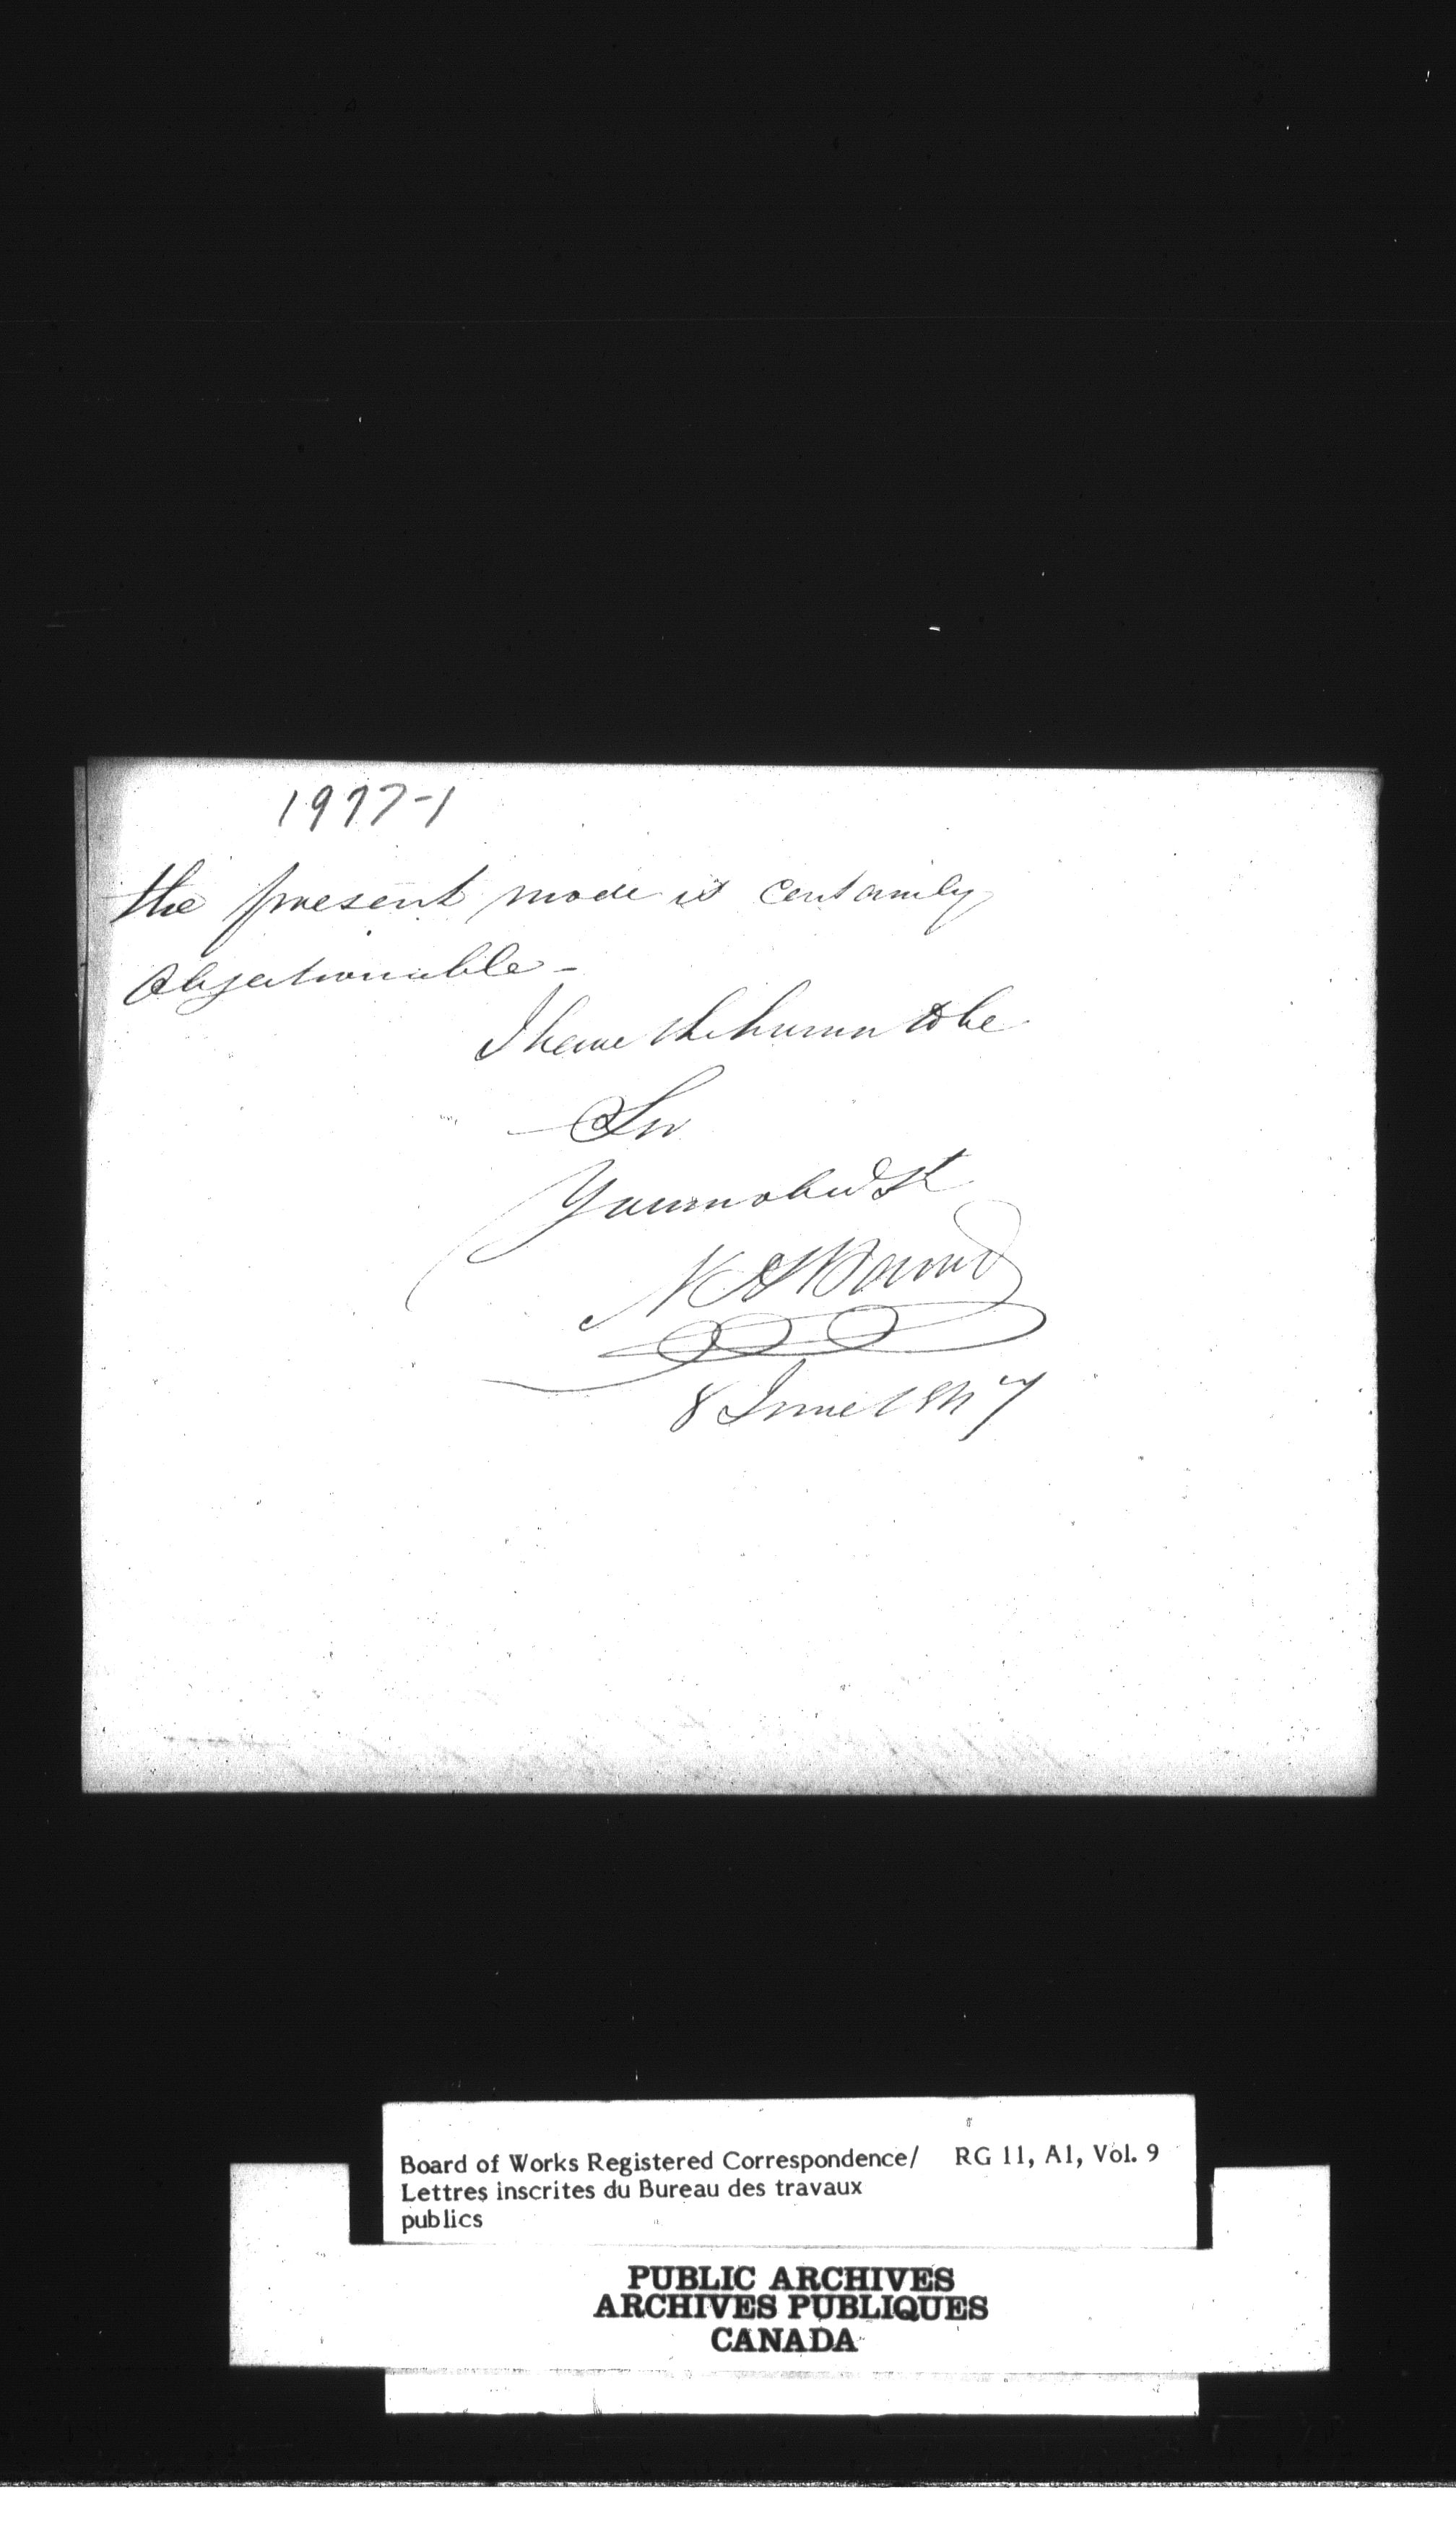 1977-1
the present mode is certainly
objectionable -
I have the honor to be
Sir
Your obed St
N H Baird
8 June 1847
Board of Works Registered Correspondence/ RG 11, A1, Vol. 9
Lettres inscrites du Bureau des travaux
publics
PUBLIC ARCHIVES
ARCHIVES PUBLIQUES
CANADA